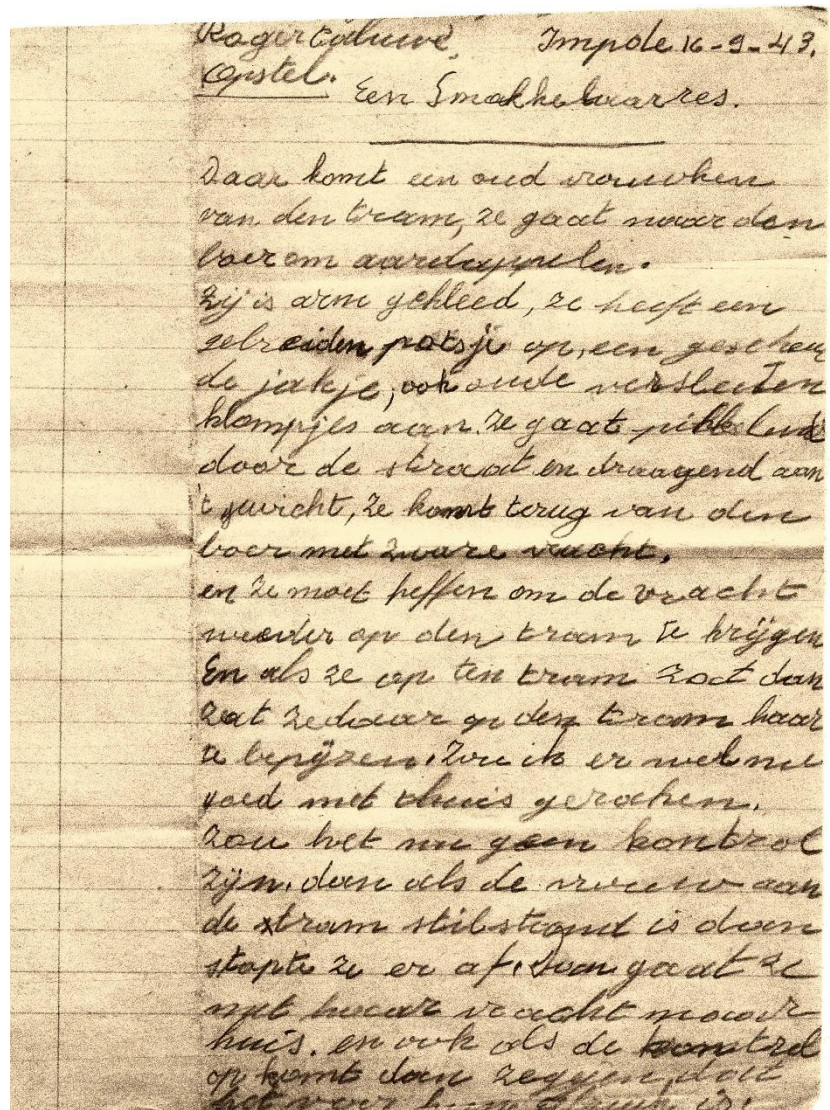 Roger Caluwé, Impde 16-9-43.
Opstel.
Een Smokkelaarres.
Daar komt een oud vrouwken
van den tram, ze gaat naar den
boer om aardappelen.
Zij is arm gekleed, ze heeft een
gebreiden potsje op, een gescheur
de jakje, ook oude versleten
klompjes aan. ze gaat pikkelend
door de straat en draagend aan
't gewicht, ze komt terug van den
boer met zware vracht.
en ze moet heffen om de vracht
weeder op den tram te krijgen
En als ze op ten tram zat dan
zat ze daar op den tram haar
te bepijzen. Zou ik er wel me
goed met thuis geraken.
Zou het nu geen kontrol
zijn. dan als de vrouw aan
de tram stilstand is dan
stapte ze er af. Dan gaat ze
met haar vracht naar
huis. en ook als de kontrol
op komt dan zeggen, dat
het voor